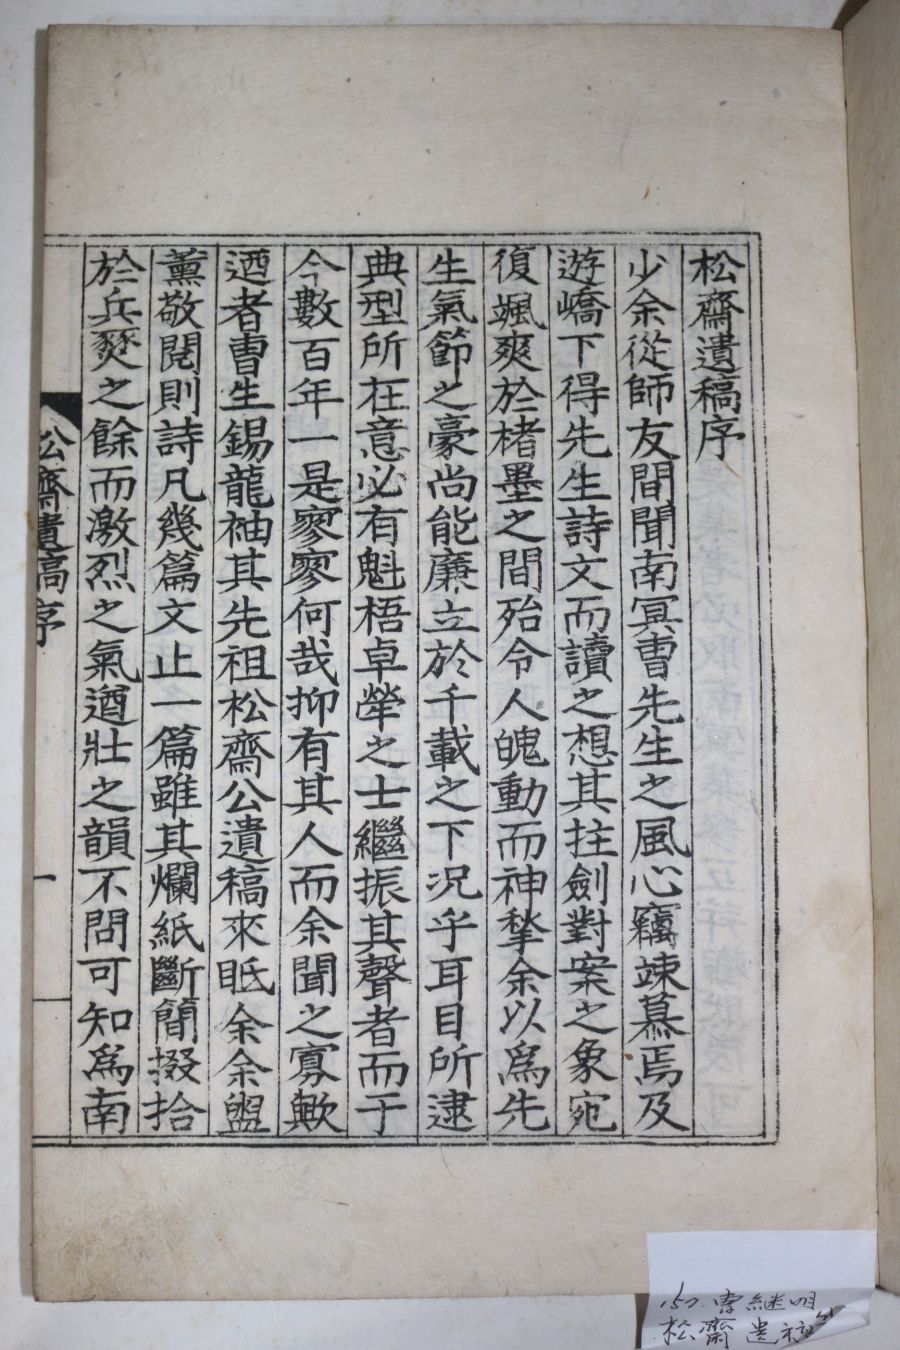 松齋遺稿序
少余從師友間聞南冥曺先生之風心竊竦慕焉及
遊嶠下得先生詩文而讀之想其拄劍對案之象宛
復颯爽於楮墨之間殆令人魄動而神摯余以爲先
生氣節之豪尚能廉立於千載之下况乎耳目所逮
典型所在意必有魁梧卓犖之士繼振其聲者而于
今數百年一是寥寥何哉抑有其人而余聞之寡歟
迺者曺生錫龍袖其先祖松齋公遺稿來眡余余盥
薰敬閱則詩凡幾篇文止一篇雖其爛紙斷簡掇拾
於兵燹之餘而激烈之氣遒壯之韻不問可知爲南
松齋遺稿序
一
150. 曺継明
松齋 遺稿